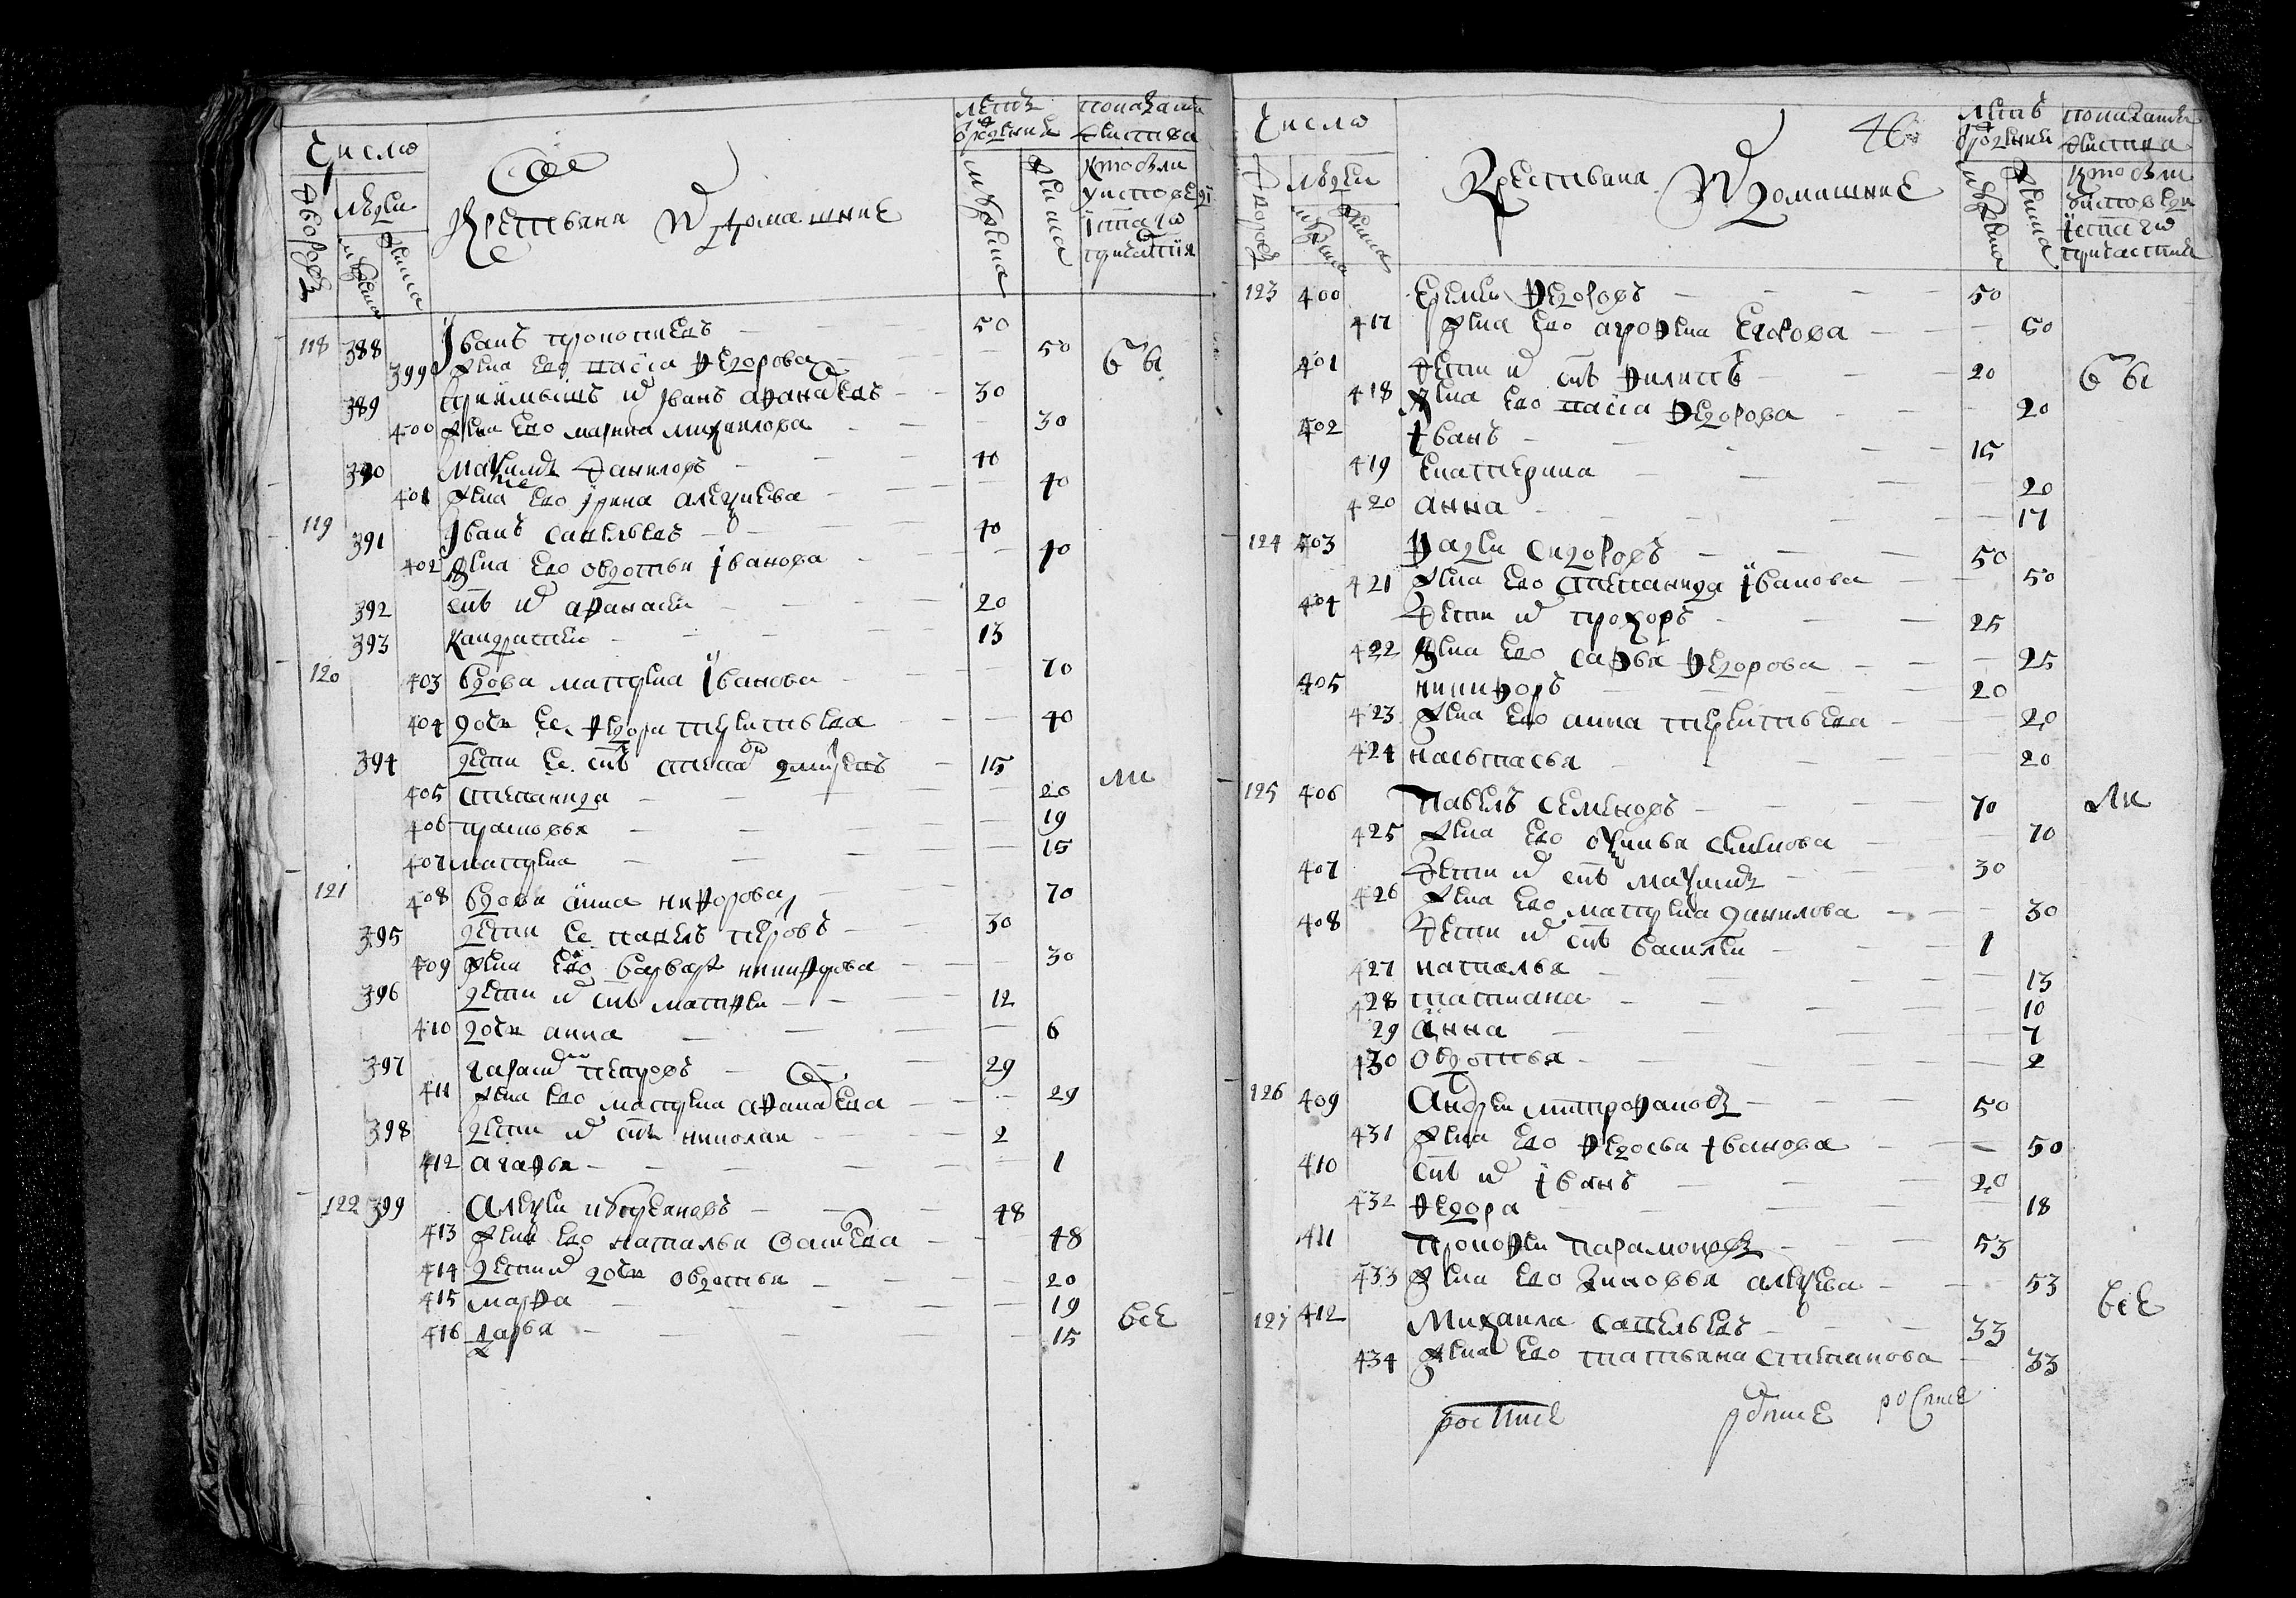 Число
Крестьяня и домашние
летъ
рожения
показание
действа
дворовъ
людеи
мужска
женска
мужска
женска
кто были
у исповеди
и с̃таго
причастия
118 388 Їванъ прокопиевъ 50
399 жена ево пасја федорова 50
389 приїмышъ и Їванъ афанасевъ 30
400 жена ево марина михаилова 30
390 Маѯимъ данилов 40
401 жена ево їрина алеѯиева 40
119 391 Їванъ савельевъ 40
402 жена ево овдотья їванова 40
392 сн̃ъ и афанасеи 20
393 кандратеи 13
120 403 вдова матрена їванова 70
404 дочь ее федора терентьева 40
394 дети ее сн̃ъ степа 15
405 степанида 20
406 прасковья 19
407 матрена 15
121 408 вдова анна никфорова 70
395 дети ее павелъ петровъ 30
409 жена ево варвара никифорова 30
396 дети и сн̃ъ матфеи 12
410 дочь анна 6
397 герасим петровъ 29
411 жена ево матрена афанасева 29
398 дети и сн̃ъ николаи 2
412 агафья 1
122 399 Алеѯеи 48
413 жена ево наталья васиева 48
414 дети и дочь овдотья 20
415 марфа 19
416 дарья 15
бы
ни
все
Число
Крестьяня и домашние
46
летъ
рожения
показание
действа
дворовъ
людеи
мужска
женска
мужска
женска
кто были
у исповеди
и с̃таго
причастия
123 400 Еремеи федоровъ 50
417 жена ево агрофена Егорова 50
401 дети и сн̃ъ филипъ 20
418 жена ево пасја федорова 20
402 їванъ 15
419 екатерина 20
420 анна 17
124 403 Фадеи сидоровъ 50
421 жена ево степанида їванова 50
404 дети и прохоръ 25
422 жена ево софья федорова 25
405 никифоръ 20
423 жена ево анна терентьева 20
424 настасья 20
125 406 Павелъ семеновъ 70
425 жена ево семенова 70
407 дети и сн̃ъ маѯимъ 30
426 жена ево матрена данилова 30
408 дети и сн̃ъ василеи 1
427 наталья 13
428 татиана 10
29 анна 7
430 овдотья 2
126 409 Андреи митрофановъ 50
431 жена ево федосья їванова 50
410 сн̃ъ и їванъ 20
432 федора 18
411 Прокофеи парамоновъ 53
433 жена ево зиновья алеѯева 53
127 412 Михаила савельевъ 33
434 жена ево татьяна степанова 33
бы
ни
все